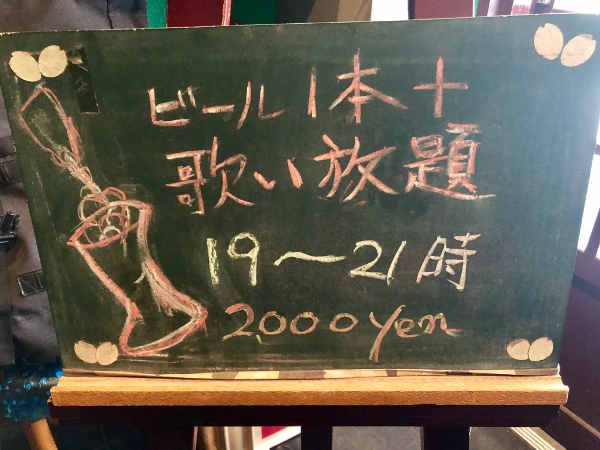 ビール1本+
歌い放題
19～21時
2,000yen